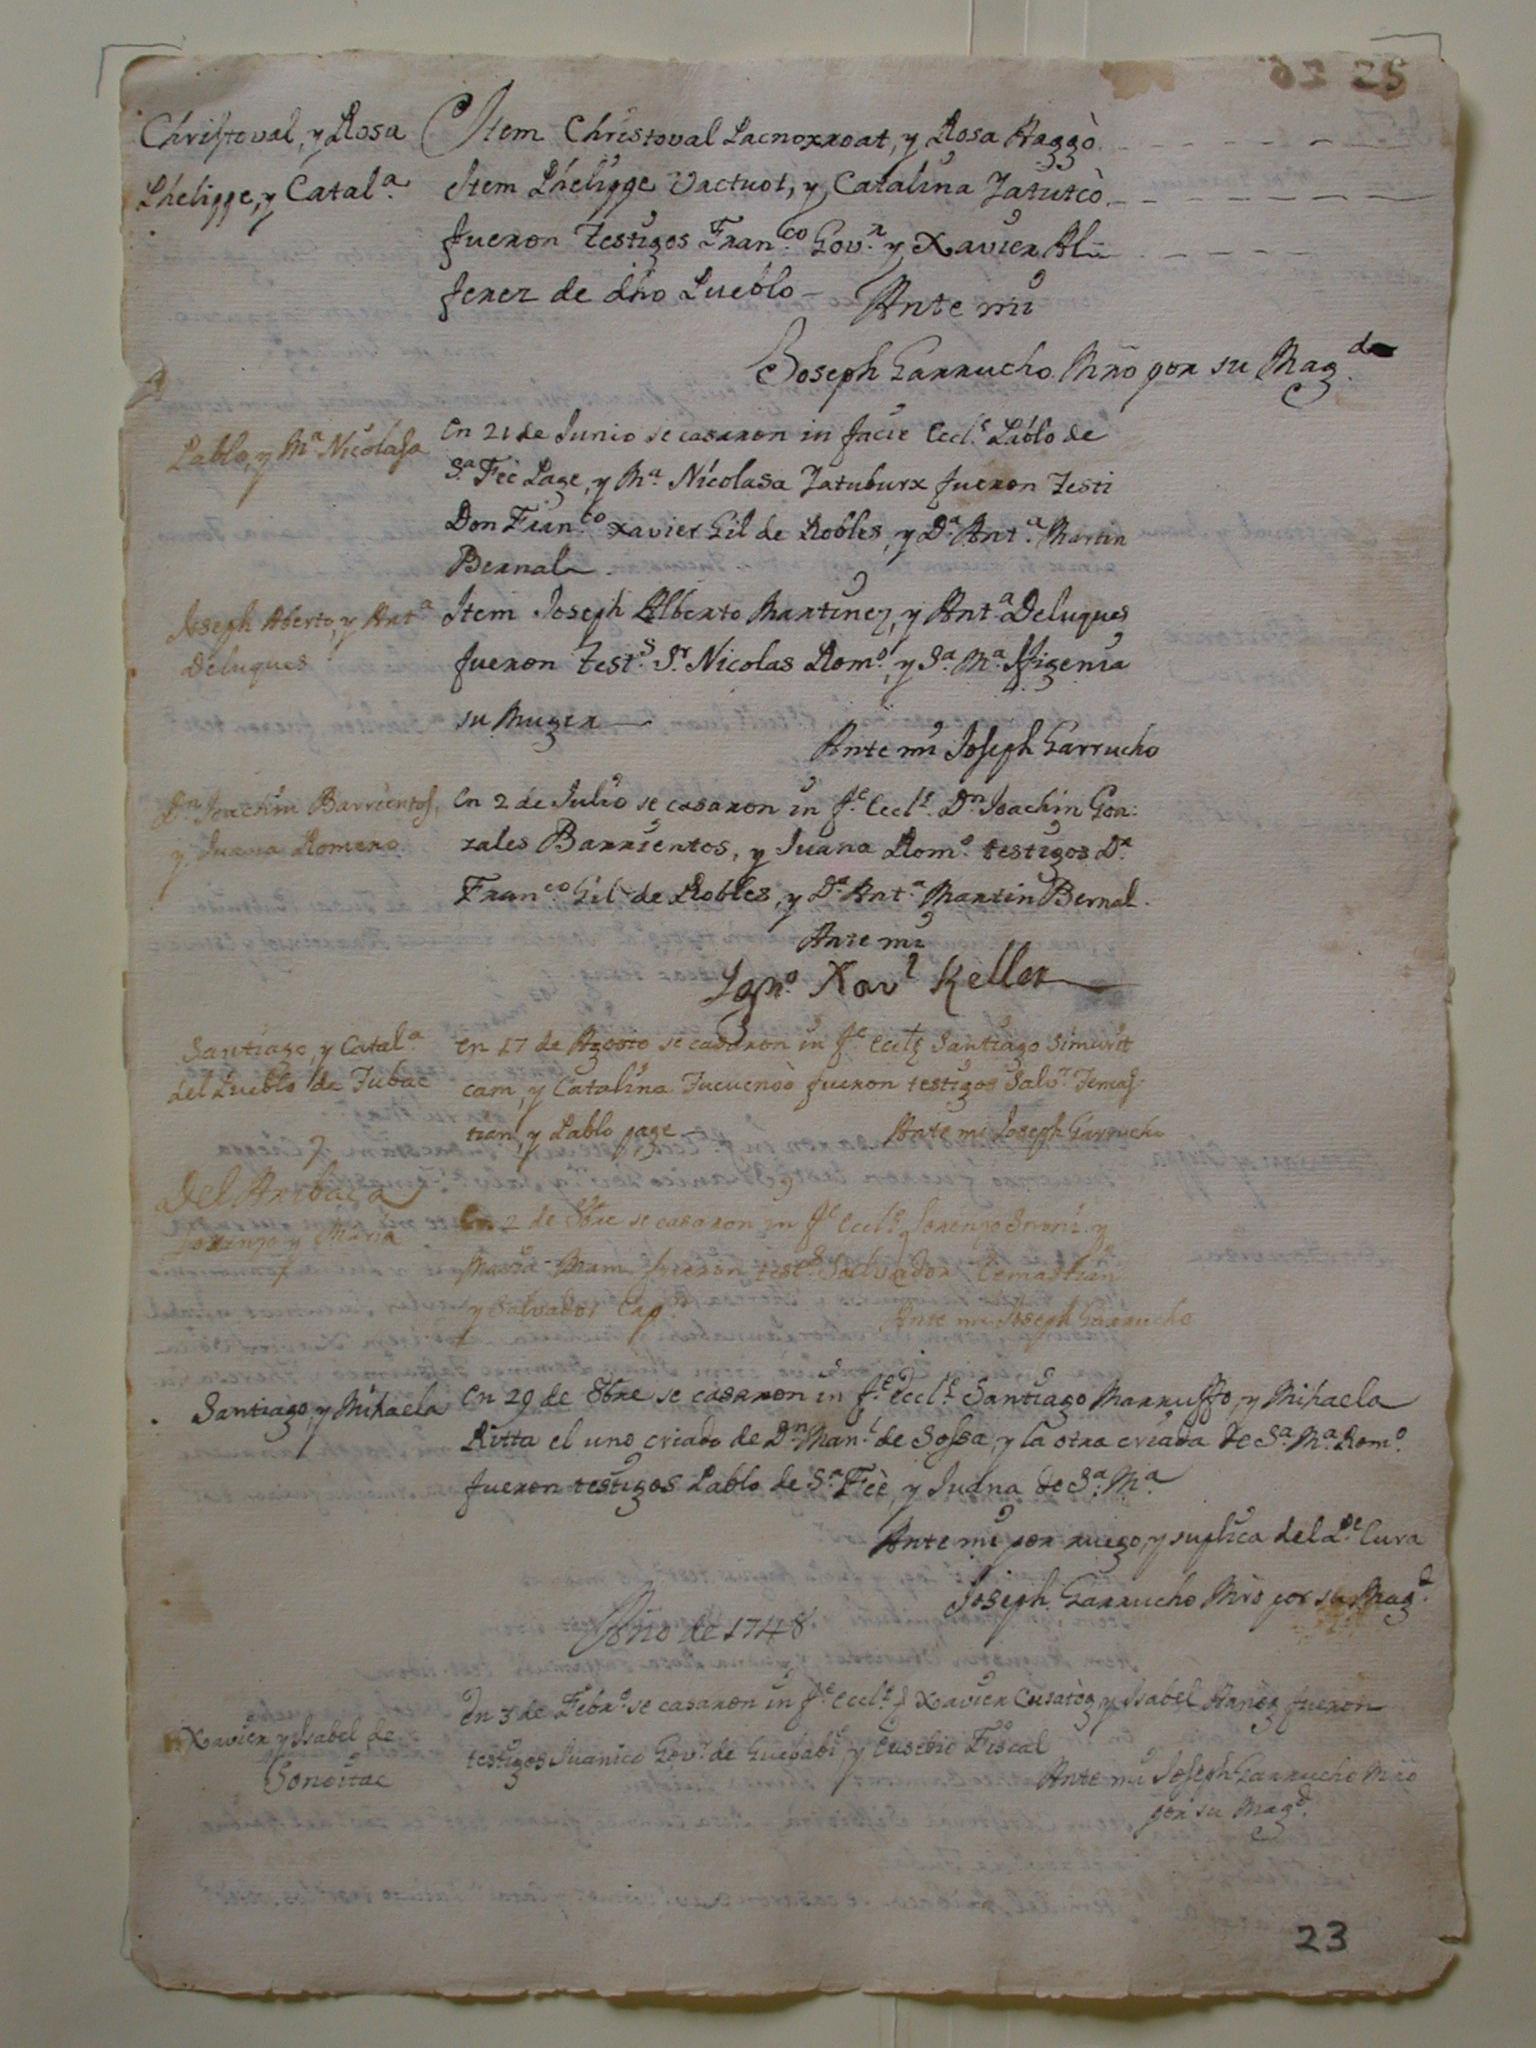 25
Christoval, y Rosa
Item Christoval Pacnoxroat, y Rosa Haggò.
Pheligpe, y Catal.a
Item Pheligpe Vactuot, y Catalina Tatutcò.
fueron testigos Fran.co Gov.r y Xavier Al=
ferez de dho Pueblo
Ante mi
Joseph Garrucho Mrõ por su Mag.d
Pablo, y M.a Nicolasa
En 21 de Junio se casaron in facie Eccl.e Pablo de
S.a Feè Page, y M.a Nicolasa Tatuburx fueron testi
Don Fran.co Xavier Gil de Robles, y D.a Ant.a Martin
Bernal
Joseph Aberto, y Ant.a
Deluques
Item Joseph Alberto Martinez, y Ant.a Deluques
fueron test.s S.r Nicolas Rom.o, y S.a M.a Ifigenia
su Muger
Ante mi Joseph Garrucho
D.n Joachin Barrientos,
y Juana Romero
En 2 de Julio se casaron in f.e Eccl.e D.n Joachin Gon:
zales Barrientos, y Juana Rom.o testigos D.n
Fran.co Gil de Robles, y D.a Ant.a Martin Bernal.
Ante mi
Ign.o Xav.r Keller
Santiago, y Catal.a
del Pueblo de Tubac
En 17 de Agosto se casaron in f.e Eccle Santiago Simurit
cam, y Catalina Tucuendò fueron testigos Salv.r Temas
tian, y Pablo page
Ante mi Joseph Garrucho
Del Aribaca
Lorenzo y Maria
En 2 de 8bre se casaron in f.e Eccle Lorenzo y
Maria fueron test.s Salvador Temastian
y Salvador Cap.n
Ante mi Joseph Garrucho
Santiago, y Mihaela
En 29 de 8bre se casaron in f.e Eccl.e Santiago Marruffo, y Mihaela
Ritta el uno criado de D.n Man.l de Sossa, y la otra criada de S.a M.a Rom.o
fueron testigos Pablo de S.a Feè, y Juana de S.a M.a
Ante mi por ruego, y suplica del P.e Cura
Joseph Garrucho Mrõ por su Mag.d
Año de 1748
Xavier y Isabel de
Sonoitac
En 3 de Febr.o se casaron in f.e Eccl.e Xavier Cusatòq y Isabel fueron
testigos Juanico Gov.r de Guebabi, y Eusebio Fiscal
Ante mi Joseph Garrucho Mrõ
por su Mag.d
23